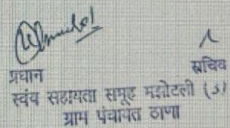 प्रधान सचिव
स्वंय सहायता समूह मझोटली (उ)
ग्राम पंचायत ठाणा